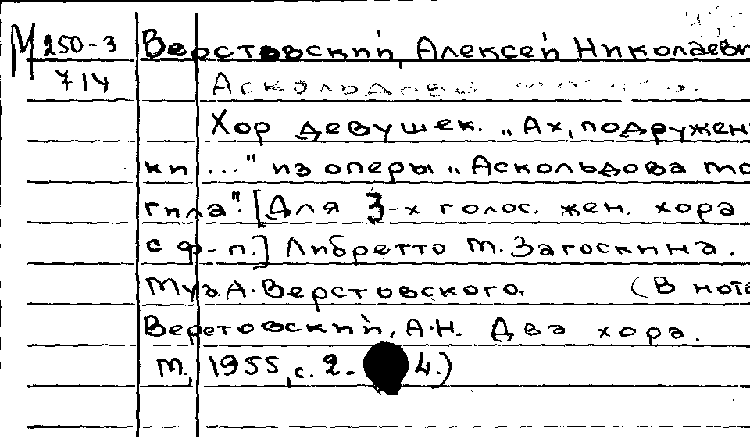 М 250-3 Верстовский, Алексей Николаеви
714 Аскольдова
Хор девушек. „Ах, подружен
ки ..." из оперы „Аскольдова мо
гила". [Для 3-х голос. жен. хора
с ф-п.] Либретто М. Загоскина.
Муз. А. Верстовского. (В нота
Верстовский, А.Н. Два хора.
М., 1955, с. 2- 4.)